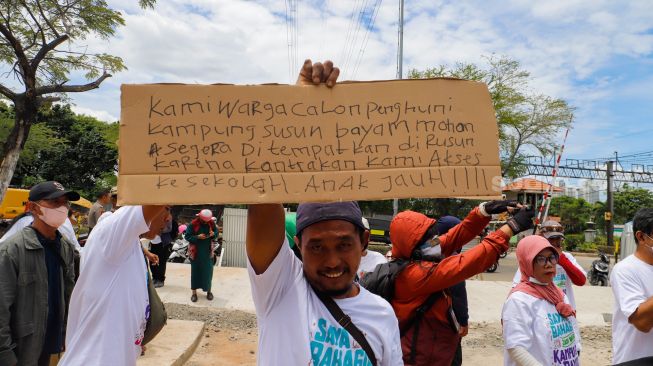 KAMI WARGA CALON PENGHUNI
KAMPUNG SUSUN BAYAM MOHON
SEGERA DITEMPATKAN DI RUSUN
KARENA KONTRAKAN KAMI AKSES
KE SEKOLAH ANAK JAUH!!!!
SAYA
BAHAGIA
SAYA
KAMPUNG